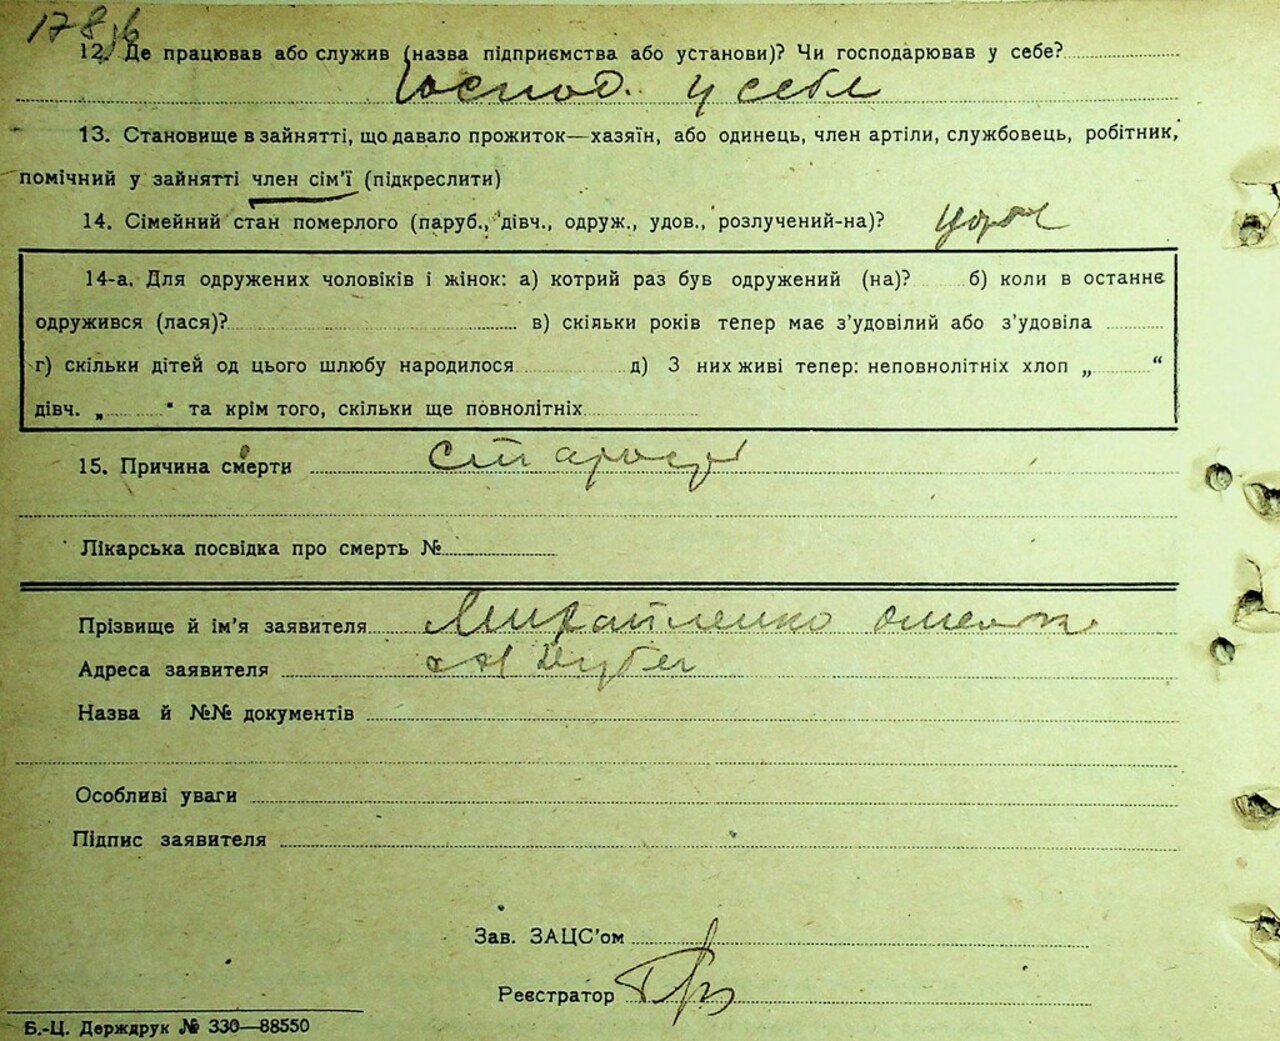 178 зв
12. Де працював або служив (назва підприємства або установи)? Чи господарював у себе?
Господ. у себе
13. Становище в зайнятті, що давало прожиток—хазяїн, або одинець, член артіли, службовець, робітник,
помічний у зайнятті член сім'ї (підкреслити)
14. Сімейний стан померлого (паруб., дівч., одруж., удов., розлучений-на)?
14-а. Для одружених чоловіків і жінок: а) котрий раз був одружений (на)? б) коли в останнє
одружився (лася)? в) скільки років тепер має з'удовілий або з'удовіла
г) скільки дітей од цього шлюбу народилося д) З них живі тепер: неповнолітніх хлоп „ “
дівч. „ “ та крім того, скільки ще повнолітніх
15. Причина смерти старості
Лікарська посвідка про смерть №
Прізвище й ім'я заявителя Михайленко
Адреса заявителя
Назва й №№ документів
Особливі уваги
Підпис заявителя
Зав. ЗАЦС'ом
Реєстратор
Б.-Ц. Держдрук № 330—88550